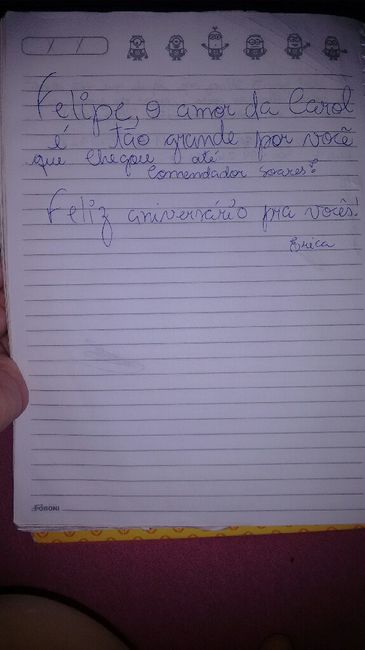 / /
Felipe, o amor da Carol
é tão grande por você
que chegou até
Comendador Soares!
Feliz aniversário pra vocês!
Erica
FORONI